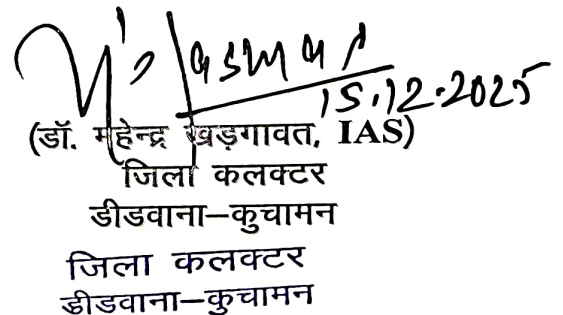 15.12.2025
(डॉ. महेन्द्र खड़गावत, IAS)
जिला कलक्टर
डीडवाना–कुचामन
जिला कलक्टर
डीडवाना–कुचामन